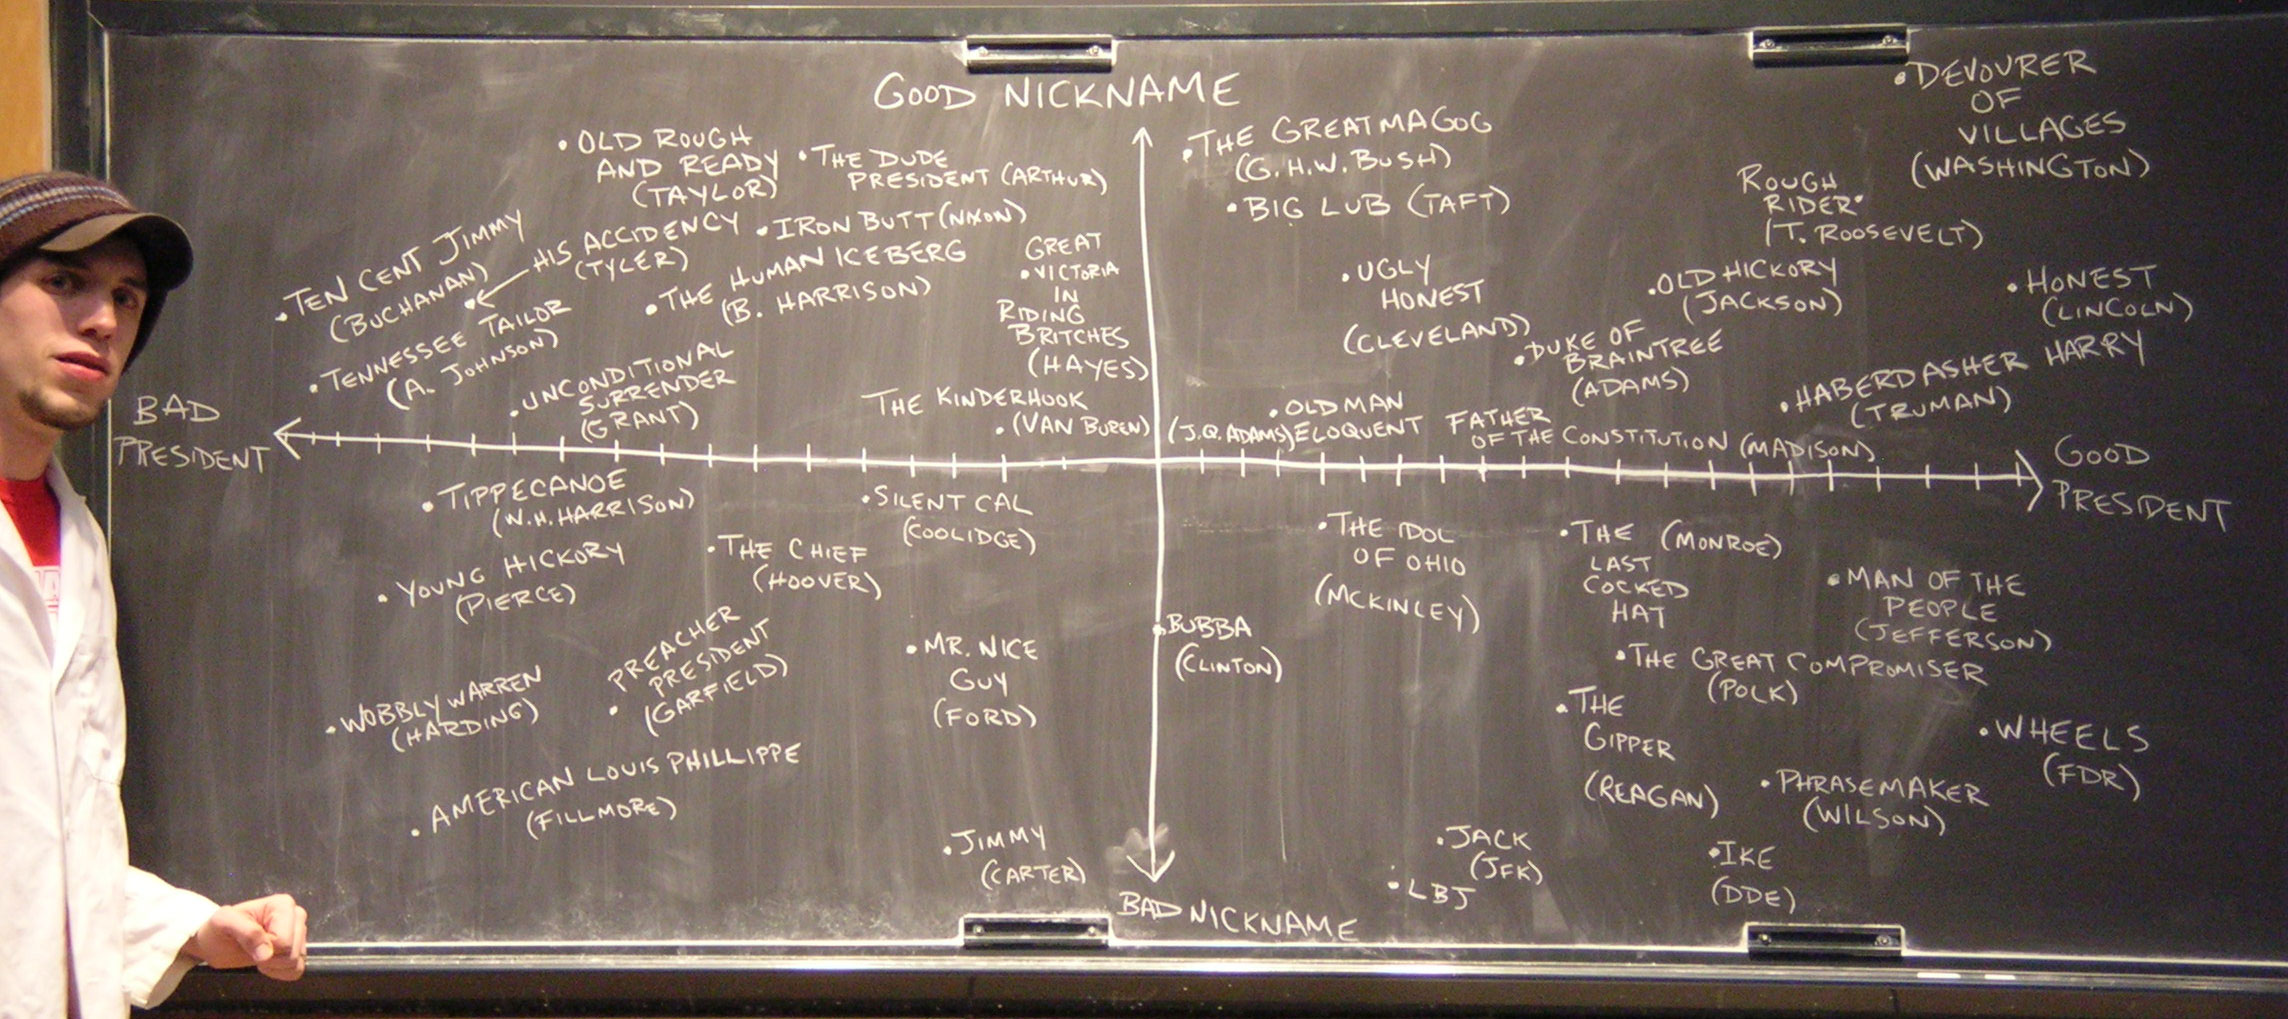 GOOD NICKNAME
• DEVOURER
OF
VILLAGES
(WASHINGTON)
• OLD ROUGH
AND READY
(TAYLOR)
• THE DUDE
PRESIDENT (ARTHUR)
• THE GREAT MAGOG
(G.H.W. BUSH)
• BIG LUB (TAFT)
ROUGH
RIDER •
(T. ROOSEVELT)
• TEN CENT JIMMY
(BUCHANAN)
HIS ACCIDENCY
(TYLER)
• IRON BUTT (NIXON)
• THE HUMAN ICEBERG
(B. HARRISON)
GREAT
• VICTORIA
IN
RIDING
BRITCHES
(HAYES)
• UGLY
HONEST
(CLEVELAND)
• OLD HICKORY
(JACKSON)
• HONEST
(LINCOLN)
• TENNESSEE TAILOR
(A. JOHNSON)
• UNCONDITIONAL
SURRENDER
(GRANT)
THE KINDERHOOK
• (VAN BUREN)
• OLD MAN
(J.Q. ADAMS) ELOQUENT
• DUKE OF
BRAINTREE
(ADAMS)
• HABERDASHER HARRY
(TRUMAN)
FATHER
OF THE CONSTITUTION (MADISON)
BAD
PRESIDENT
GOOD
PRESIDENT
• TIPPECANOE
(W.H. HARRISON)
• SILENT CAL
(COOLIDGE)
• YOUNG HICKORY
(PIERCE)
• THE CHIEF
(HOOVER)
• THE IDOL
OF OHIO
(MCKINLEY)
• THE (MONROE)
LAST
COCKED
HAT
• MAN OF THE
PEOPLE
(JEFFERSON)
• WOBBLY WARREN
(HARDING)
• PREACHER
PRESIDENT
(GARFIELD)
• MR. NICE
GUY
(FORD)
• BUBBA
(CLINTON)
• THE GREAT COMPROMISER
(POLK)
• THE
GIPPER
(REAGAN)
• WHEELS
(FDR)
• AMERICAN LOUIS PHILLIPPE
(FILLMORE)
• PHRASEMAKER
(WILSON)
• JIMMY
(CARTER)
• JACK
(JFK)
• LBJ
• IKE
(DDE)
BAD NICKNAME